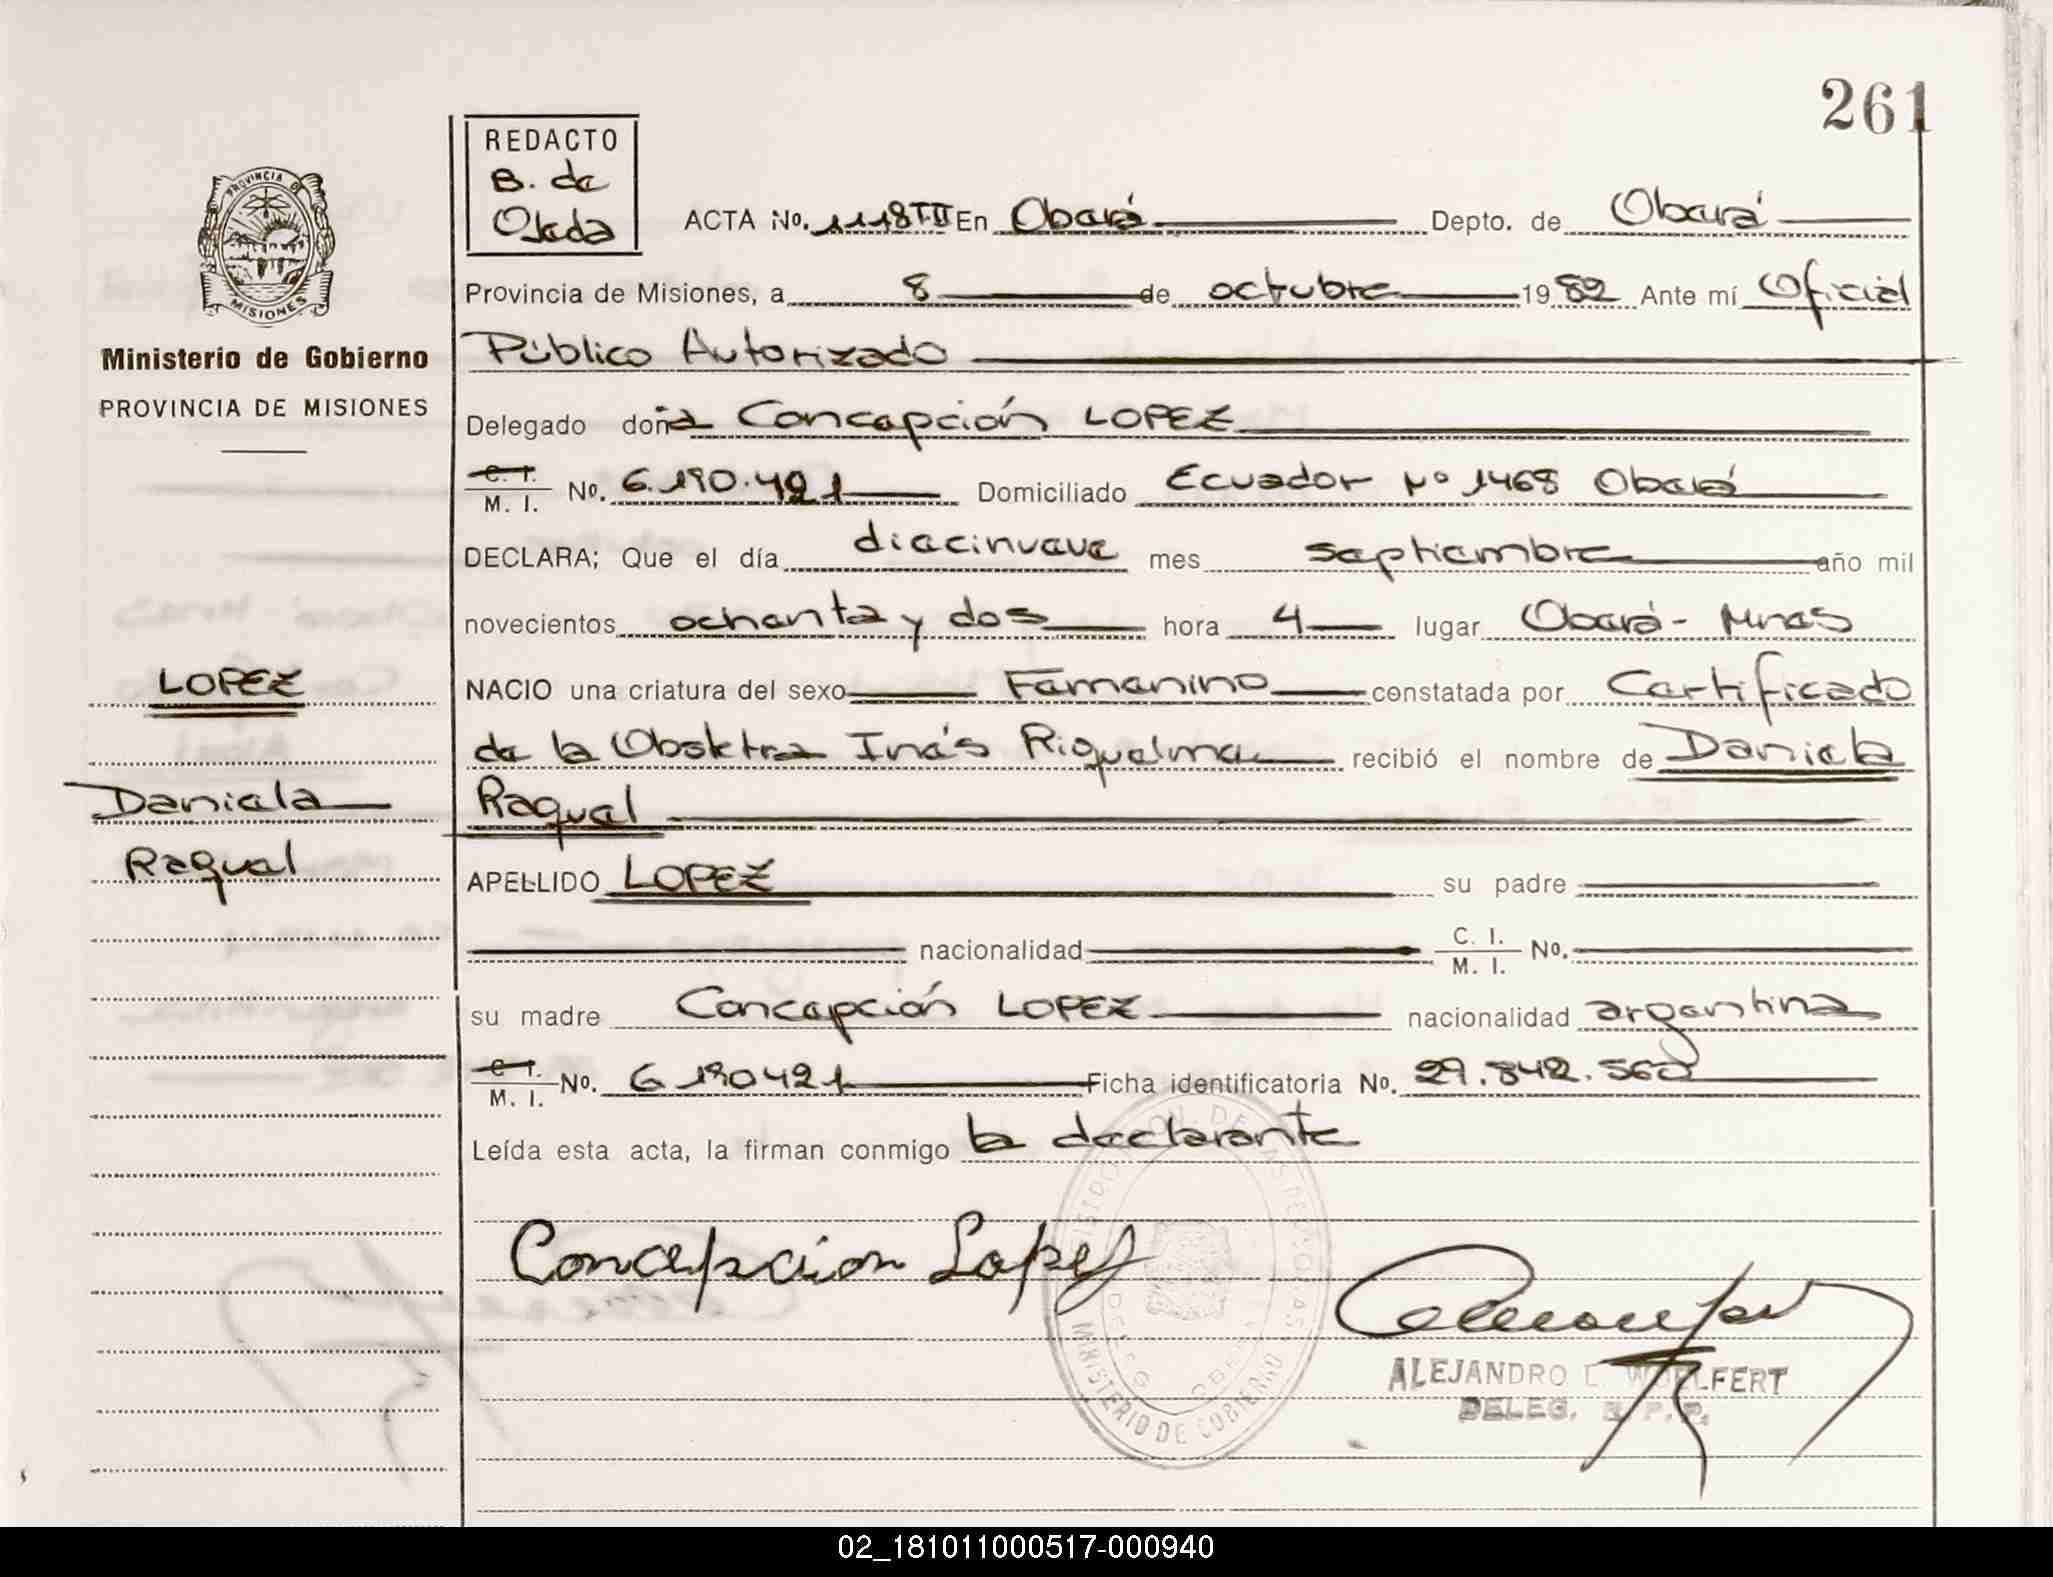 261
REDACTO
B. de
Ojeda
ACTA No. 1118 T II En Oberá Depto. de Oberá
Provincia de Misiones, a 8 de octubre 1982 Ante mí Oficial
Público Autorizado
Delegado doña Concepción LOPEZ
C. I. / M. I. No. 6.190.421 Domiciliado Ecuador Nº 1468 Oberá
DECLARA; Que el día diecinueve mes septiembre año mil
novecientos ochenta y dos hora 4 lugar Oberá - Mnes
NACIO una criatura del sexo Femenino constatada por Certificado
de la Obstetra Inés Riquelme recibió el nombre de Daniela
Raquel
APELLIDO LOPEZ su padre
nacionalidad C. I. / M. I. No.
su madre Concepción LOPEZ nacionalidad argentina
C. I. / M. I. No. 6 190421 Ficha identificatoria No. 29.842.560
Leída esta acta, la firman conmigo la declarante
Concepcion Lopez
ALEJANDRO L. WOELFERT
DELEG. R. P. P.
MINISTERIO DE GOBIERNO
PROVINCIA DE
MISIONES
Ministerio de Gobierno
PROVINCIA DE MISIONES
LOPEZ
Daniela
Raquel
02_181011000517-000940